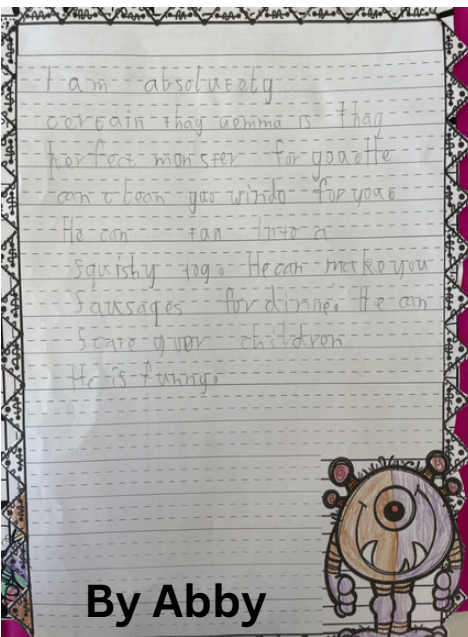 I am absolutely
certain thay gemma is thay
perfect monster for you. He
can clean you windo for you.
He can tun into a
squishy tog. He can make you
Sausages for dinne. He can
Scare your children
He is funny.
By Abby